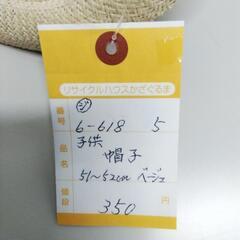 リサイクルハウスかざぐるま
ジ
番号 6-618 5
品名 子供
帽子
51〜52cm ベージュ
値段 350 円